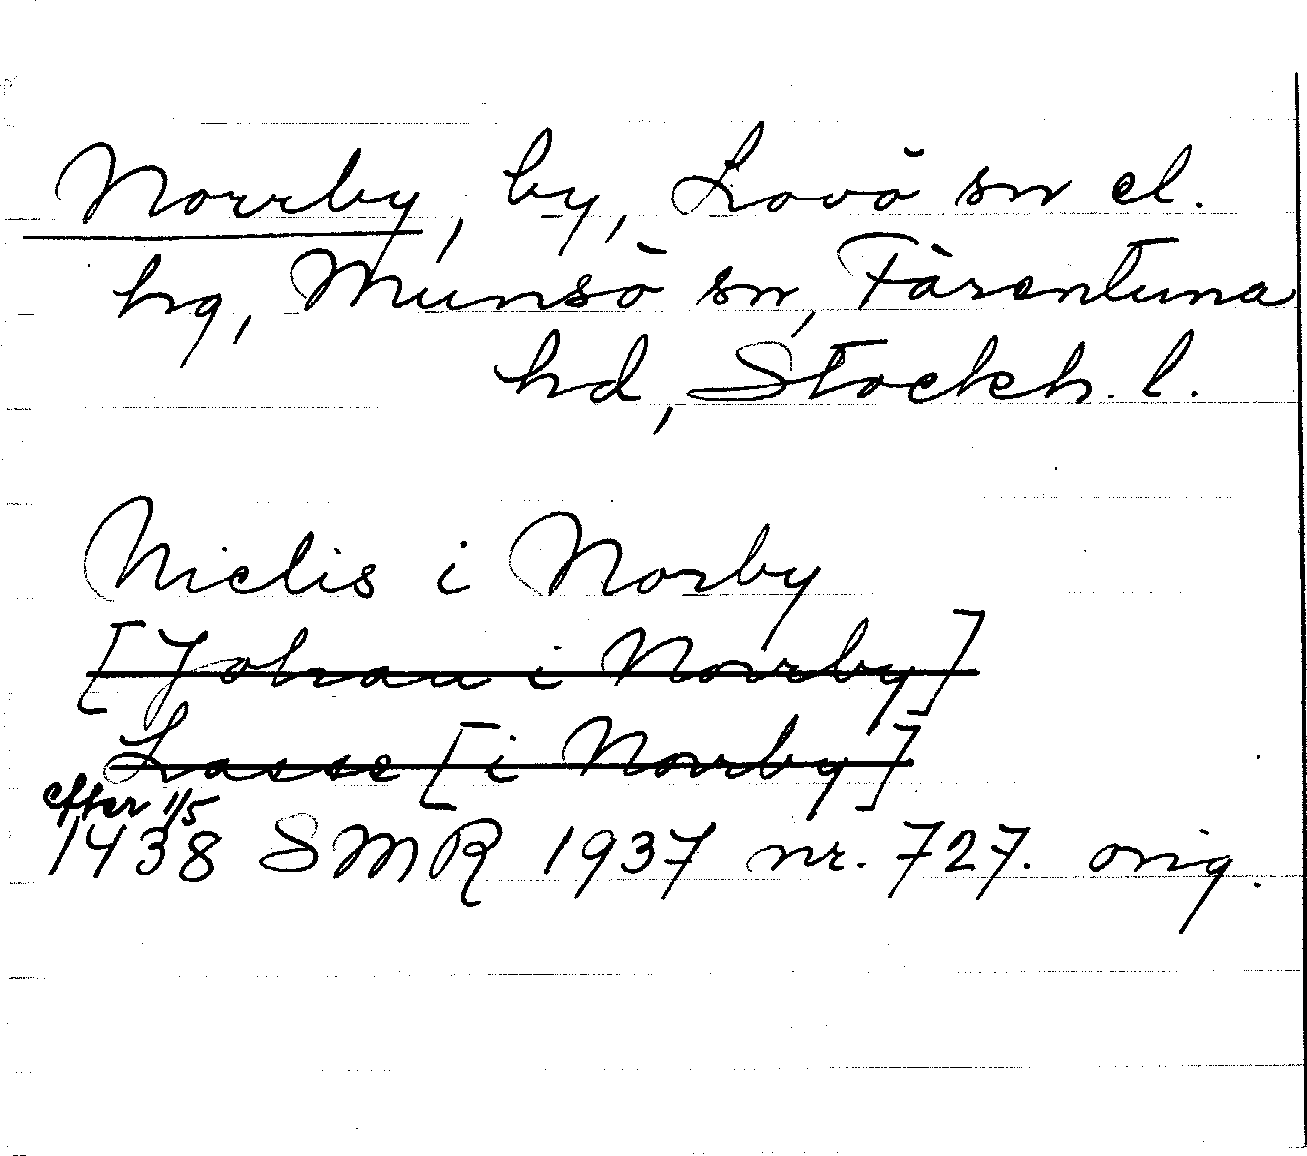 Norrby, by, Lovö sn el.
hg, Munsö sn, Färentuna
hd, Stockh. l.
Nielis i Norby
[Johan i Norrby]
Lasse [i Norrby]
efter 1/5
1438 SMR 1937 nr. 727. orig.